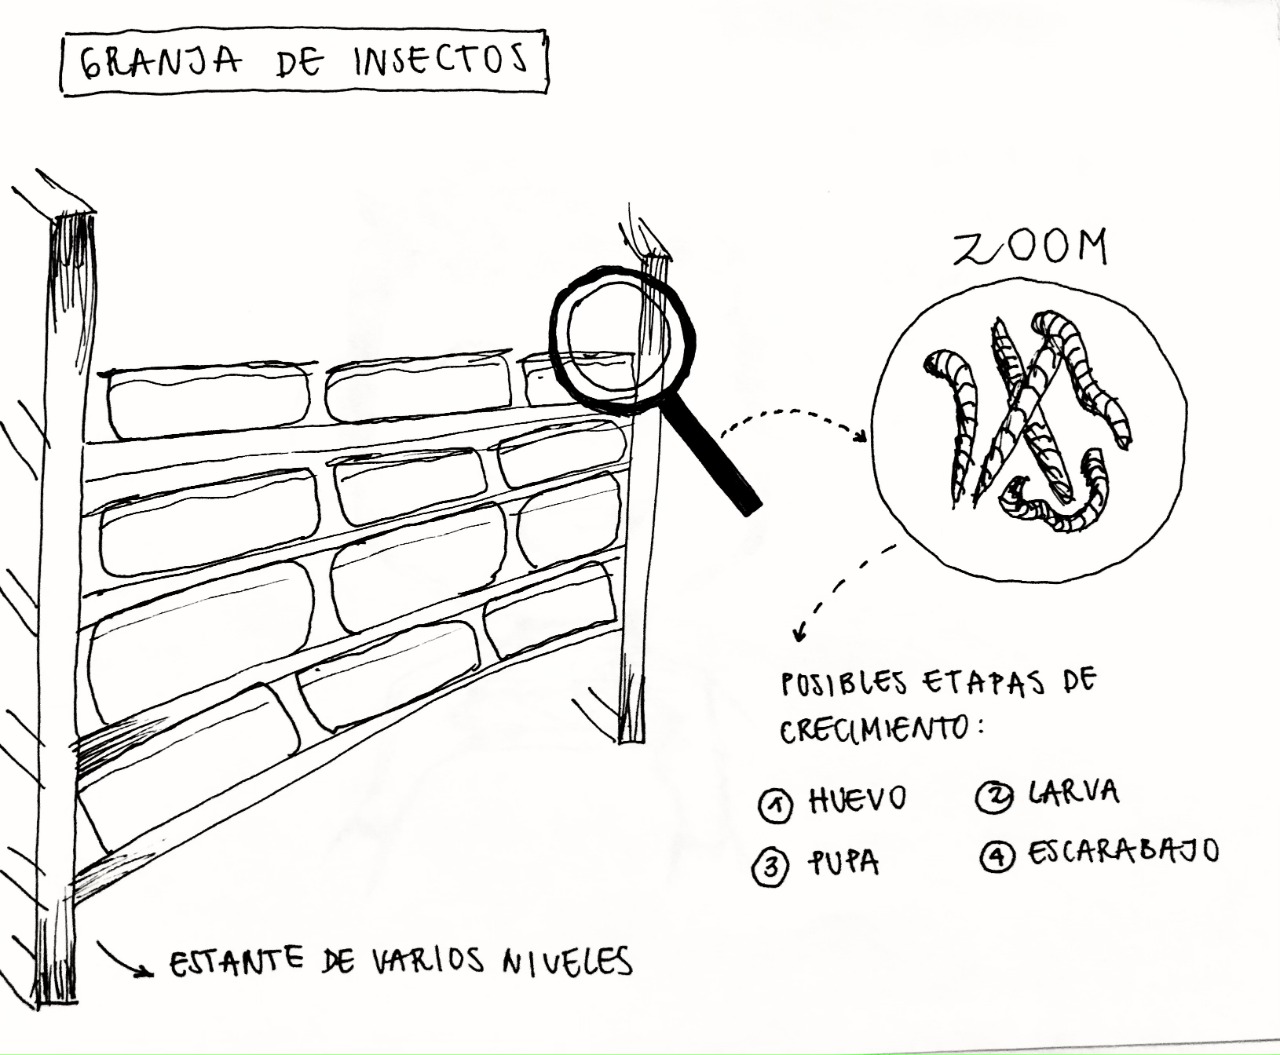 GRANJA DE INSECTOS
ZOOM
POSIBLES ETAPAS DE
CRECIMIENTO:
1 HUEVO
2 LARVA
3 PUPA
4 ESCARABAJO
ESTANTE DE VARIOS NIVELES